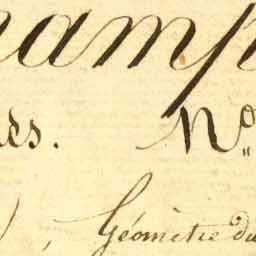 hamp
es. No
, Géomètre du